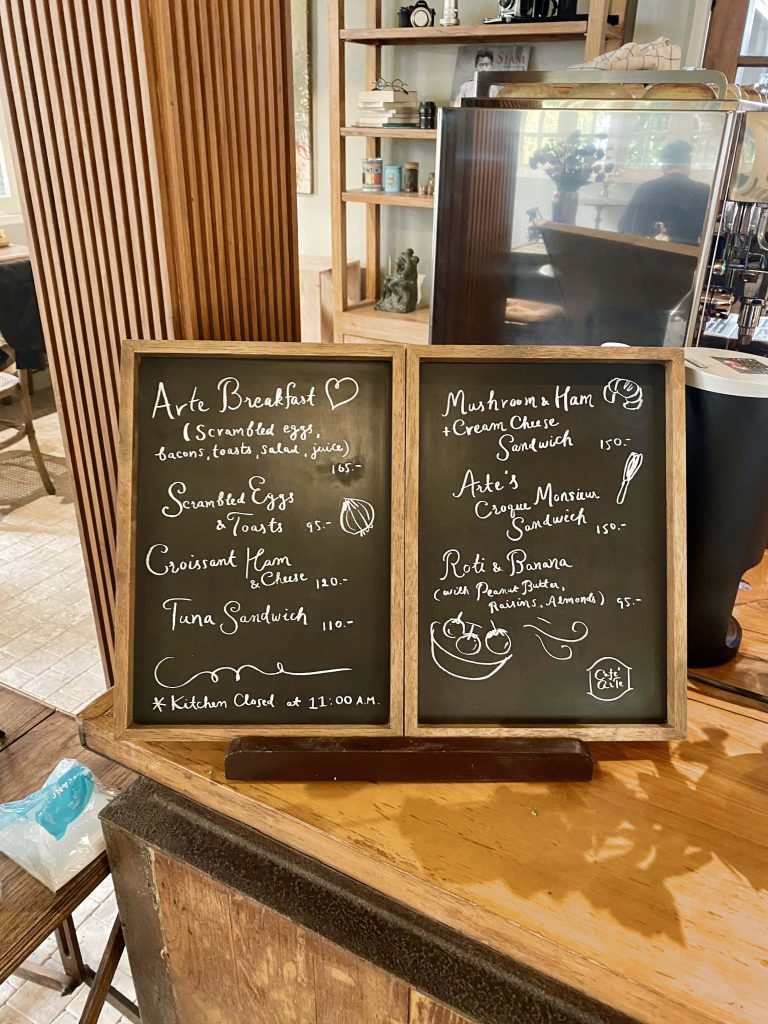 Arte Breakfast
(Scrambled eggs,
bacons, toasts, salad, juice)
165.-
Scrambled Eggs
& Toasts 95.-
Croissant Ham
& Cheese 120.-
Tuna Sandwich 110.-
* Kitchen Closed at 11:00 A.M.
Mushroom & Ham
+ Cream Cheese
Sandwich 150.-
Arte's
Croque Monsieur
Sandwich 150.-
Roti & Banana
(with Peanut Butter,
Raisins, Almonds) 95.-
Café
Arte
SIAM